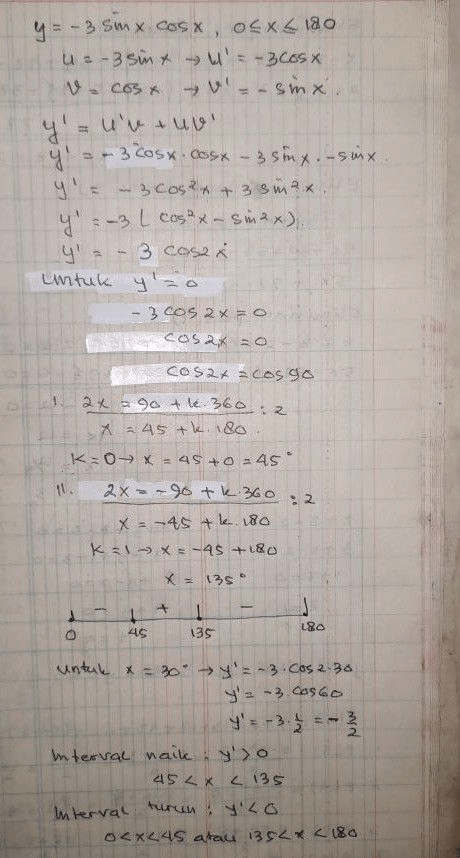 y = -3 sin x cos x, 0 ≤ x ≤ 180
u = -3 sin x → u' = -3 cos x
v = cos x → v' = - sin x.
y' = u'v + uv'
y' = -3 cos x . cos x - 3 sin x . - sin x
y' = -3 cos²x + 3 sin²x.
y' = -3 ( cos²x - sin²x).
y' = -3 cos 2x
untuk y' = 0
-3 cos 2x = 0
cos 2x = 0
cos 2x = cos 90
I. 2x = 90 + k.360 : 2
x = 45 + k.180.
k=0 → x = 45 + 0 = 45°
II. 2x = -90 + k.360 : 2
x = -45 + k.180
k = 1 → x = -45 + 180
x = 135°
- + -
0 45 135 180
untuk x = 30° → y' = -3. cos 2.30
y' = -3 cos 60
y' = -3. 1/2 = - 3/2
Interval naik : y' > 0
45 < x < 135
Interval turun : y' < 0
0 < x < 45 atau 135 < x < 180